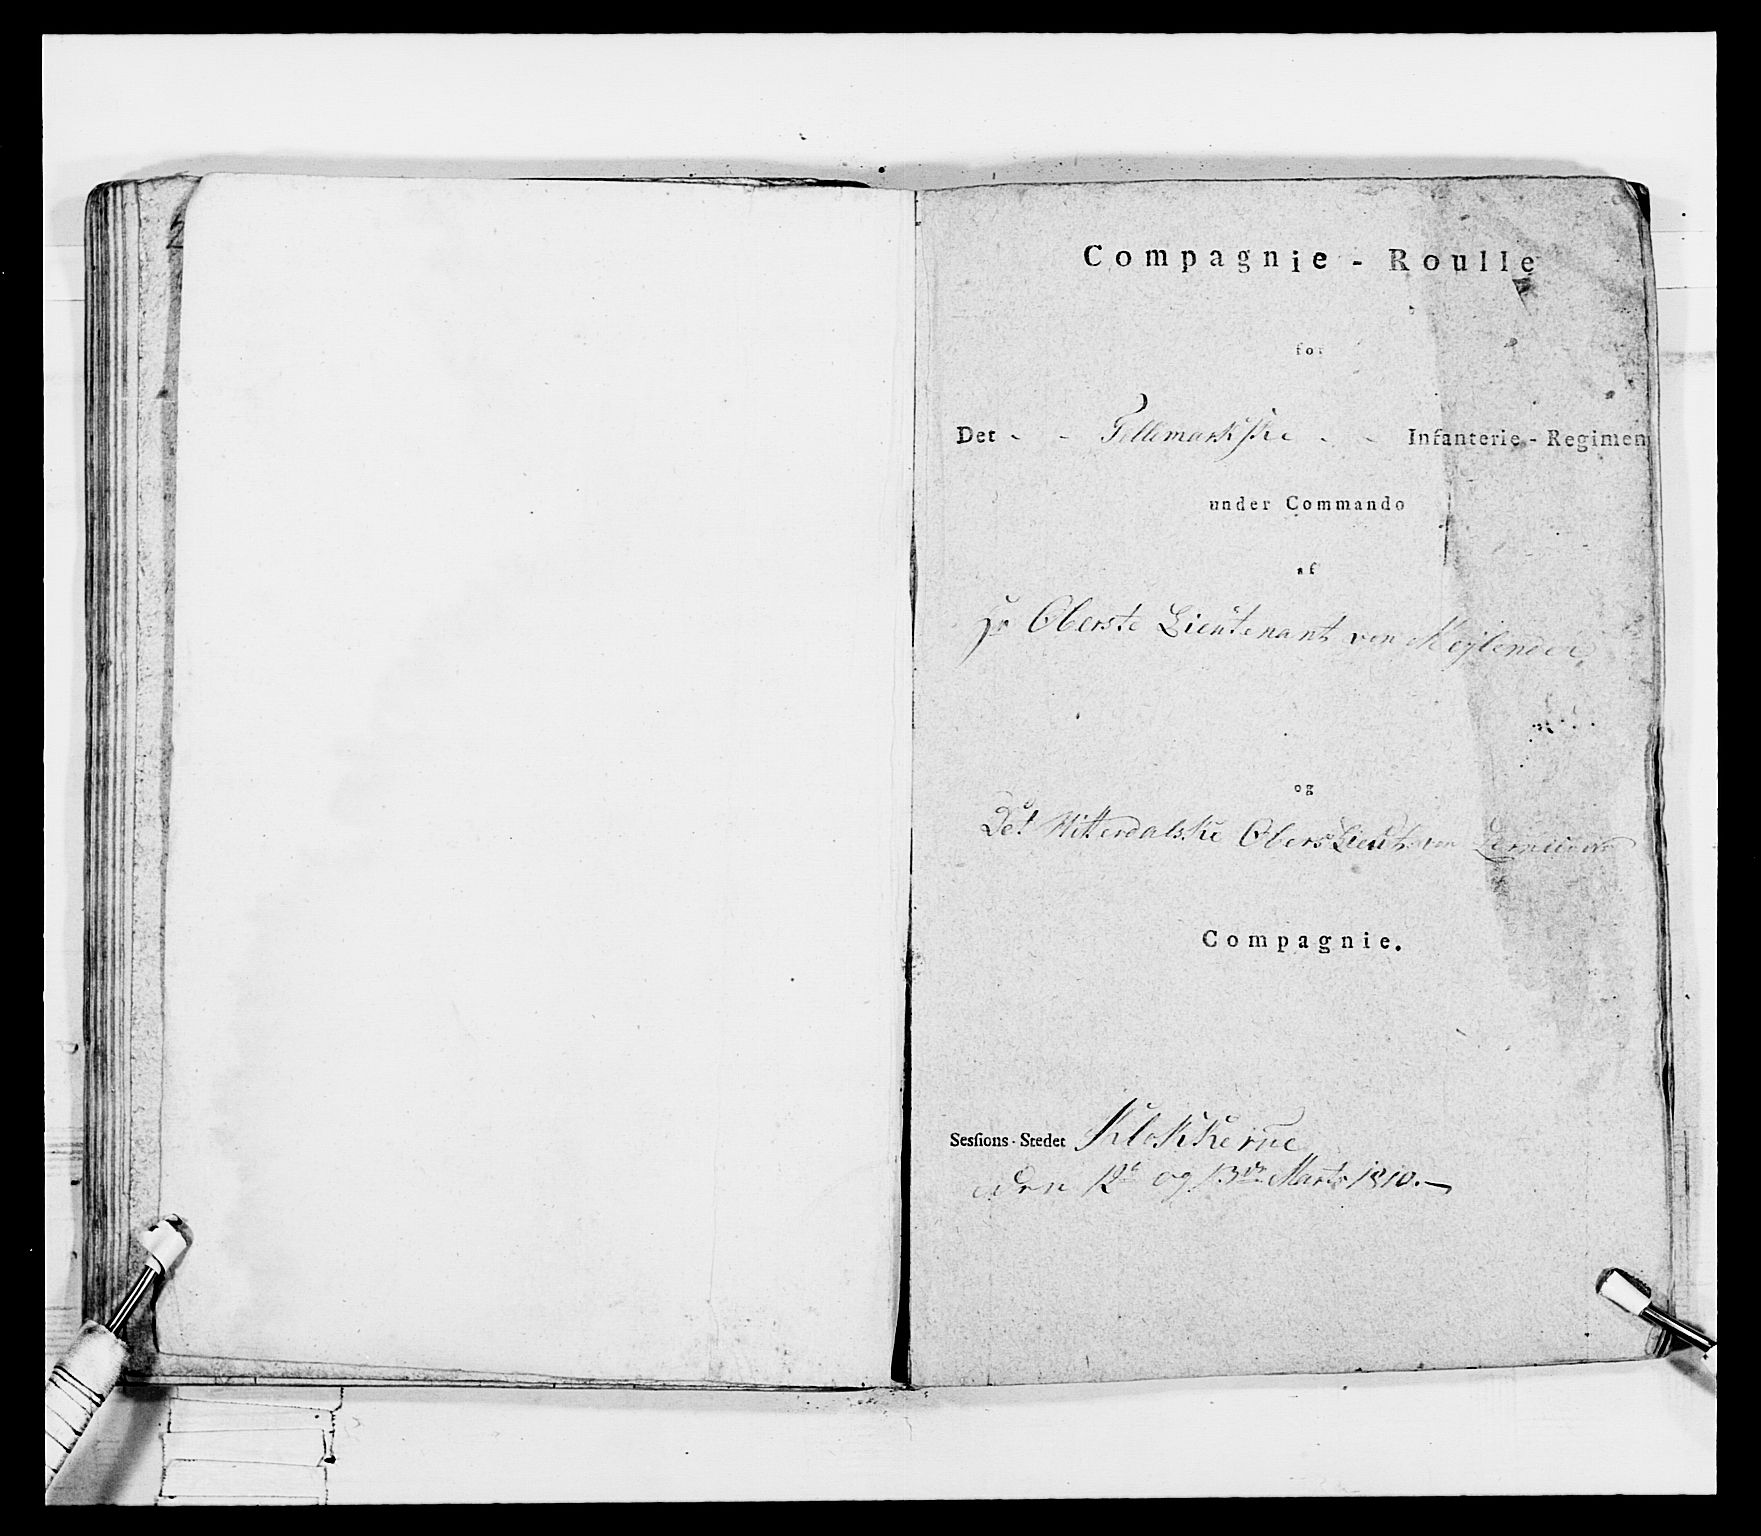 Compagnie - Roulle
for
Det - - Tellemarkske - - Infanterie - Regimen
under Commando
af
Hr Oberste Lieutenant von
og
Det Hitterdalske Oberst Lieut: von
Compagnie.
Sesſions-Stedet Klokkerne
den 12te og 13de Marts 1810. —